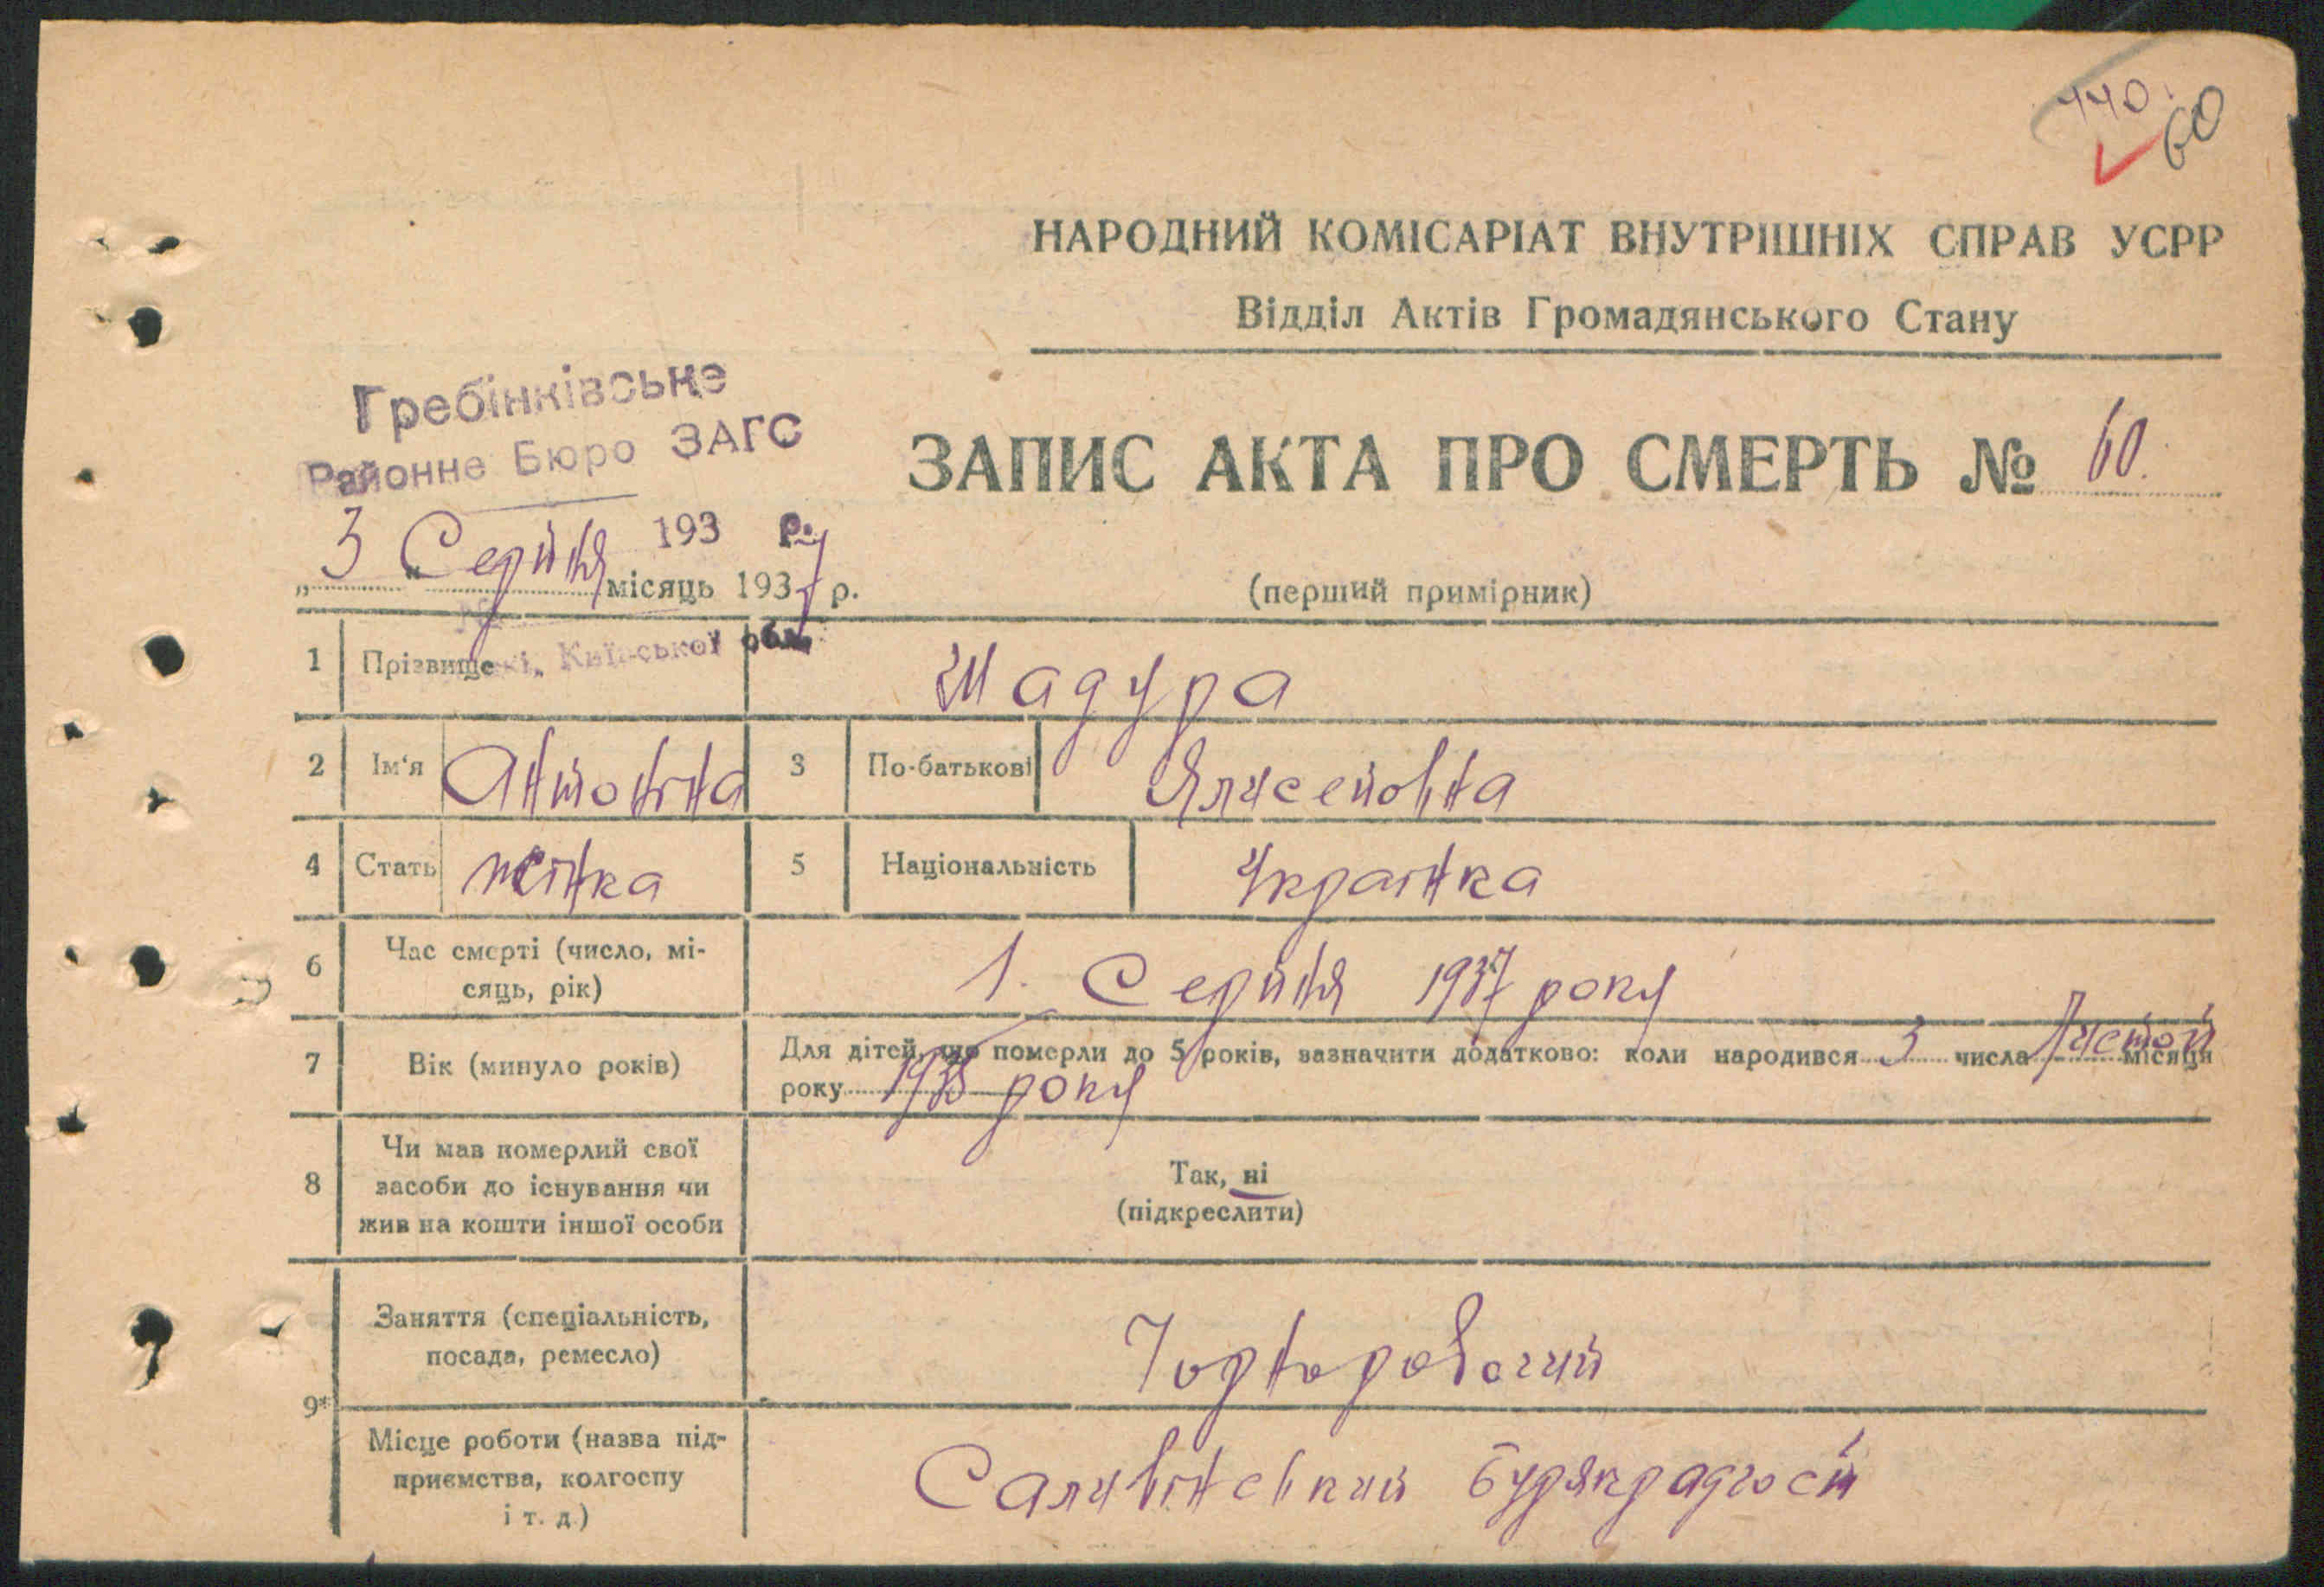 440
60
НАРОДНИЙ КОМІСАРІАТ ВНУТРІШНІХ СПРАВ УСРР
Відділ Актів Громадянського Стану
Гребінківське
Районне Бюро ЗАГС
ЗАПИС АКТА ПРО СМЕРТЬ № 60.
193 р.
„3" Серпня місяць 1937 р.
(перший примірник)
Київської обл.
1 Прізвище Шадура
2 Ім'я Антоніна 3 По-батькові Ялисейовна
4 Стать жінка 5 Національність Українка
6 Час смерті (число, мі-
сяць, рік) 1. Серпня 1937 року
7 Вік (минуло років) Для дітей, що померли до 5 років, зазначити додатково: коли народився 3 числа Лютой місяця
року 1935 року
8 Чи мав померлий свої
засоби до існування чи
жив на кошти іншої особи
Так, ні
(підкреслити)
9* Заняття (спеціальність,
посада, ремесло) Чорноробочий
Місце роботи (назва під-
приємства, колгоспу
і т. д.) Саливінсвкий бурякрадгосп